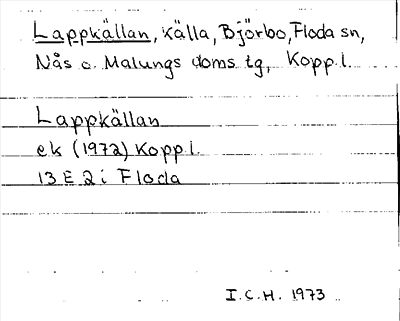 Lappkällan, källa, Björbo, Floda sn,
Nås o. Malungs doms. tg, Kopp. l.
Lappkällan
ek (1972) Kopp l.
13 E 2 i Floda
I.C.H. 1973